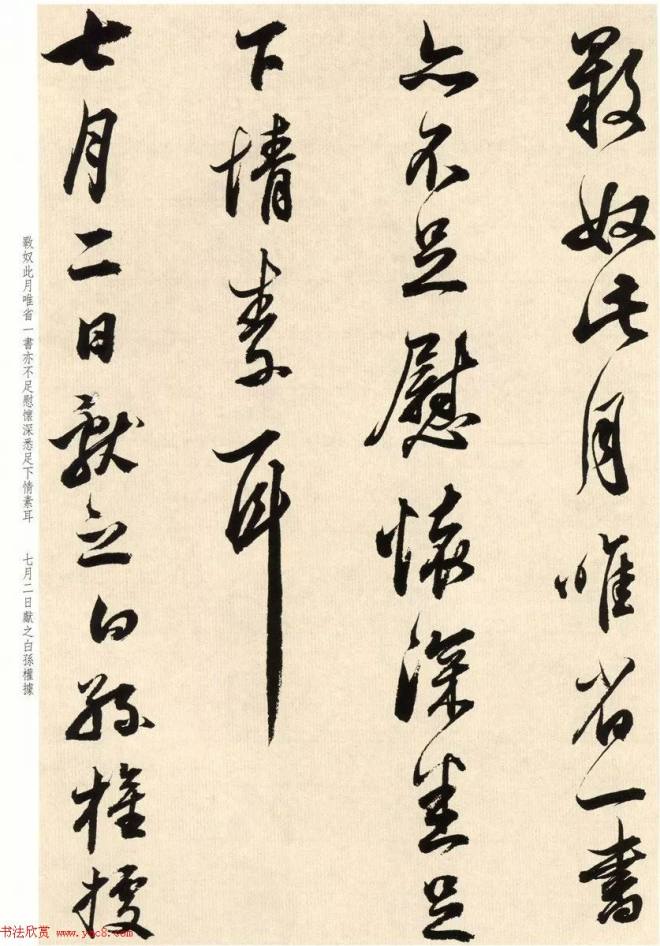 㪘奴此月唯省一書
亦不足慰懷深悉足
下情素耳
七月二日獻之白孫權據
㪘奴此月唯省一書亦不足慰懷深悉足下情素耳　七月二日獻之白孫權據
书法欣赏 www.yac8.com